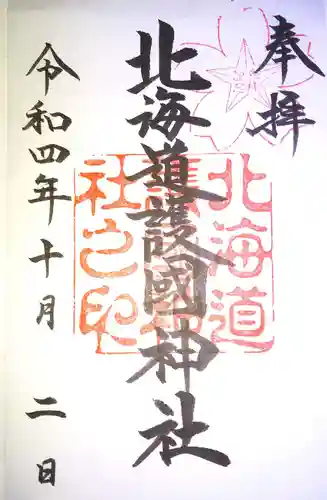 奉拝
北海道護國神社
令和四年十月二日
北海道護國神社之印